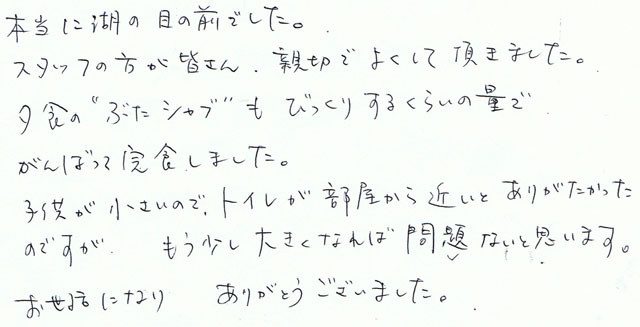 本当に湖の目の前でした。
スタッフの方が皆さん、親切でよくして頂きました。
夕食の"ぶたシャブ"もびっくりするくらいの量で
がんばって完食しました。
子供が小さいので、トイレが部屋から近いとありがたかった
のですが、もう少し大きくなれば問題ないと思います。
お世話になり ありがとうございました。